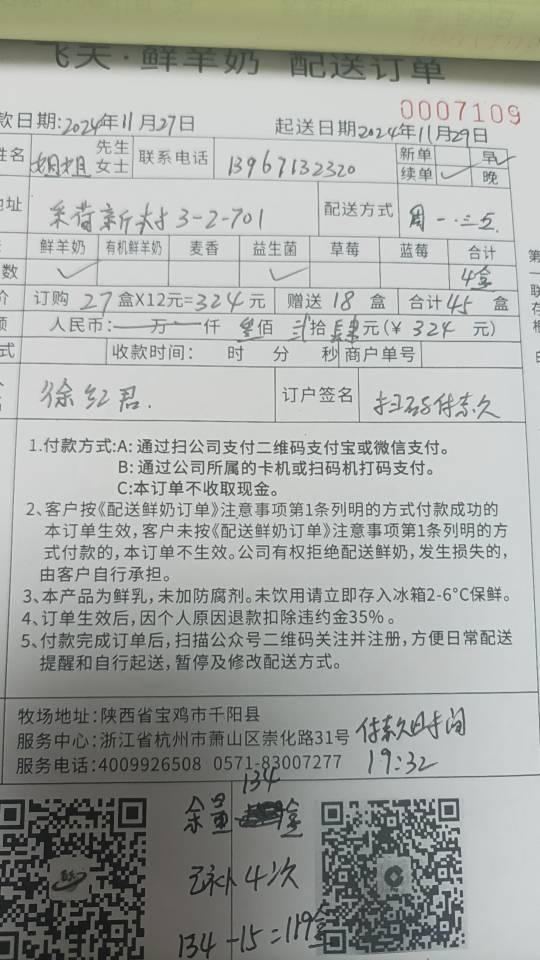 飞天·鲜羊奶 配送订单
0007109
款日期:2024年11月27日 起送日期2024年11月29日
姓名 姐姐 先生 女士 联系电话 13967132320 新单 早✓
续单 ✓ 晚
地址 采荷新村3-2-701 配送方式 周一·三五
鲜羊奶 有机鲜羊奶 麦香 益生菌 草莓 蓝莓 合计
数 ✓ ✓ 4盒
价 订购 27 盒X12元=324元 赠送 18 盒 合计45 盒
额 人民币:一万一仟 叁佰 贰拾 肆元(¥ 324 元)
式 收款时间: 时 分 秒 商户单号
徐红君. 订户签名 扫码付款久
1.付款方式:A: 通过扫公司支付二维码支付宝或微信支付。
B: 通过公司所属的卡机或扫码机打码支付。
C:本订单不收取现金。
2、客户按《配送鲜奶订单》注意事项第1条列明的方式付款成功的
本订单生效，客户未按《配送鲜奶订单》注意事项第1条列明的方
式付款的，本订单不生效。公司有权拒绝配送鲜奶，发生损失的，
由客户自行承担。
3、本产品为鲜乳，未加防腐剂。未饮用请立即存入冰箱2-6°C保鲜。
4、订单生效后，因个人原因退款扣除违约金35%。
5、付款完成订单后，扫描公众号二维码关注并注册，方便日常配送
提醒和自行起送，暂停及修改配送方式。
第
一
联
存
根
白
牧场地址:陕西省宝鸡市千阳县
服务中心:浙江省杭州市萧山区崇化路31号
服务电话:4009926508 0571-83007277
付款时间
19:32
134
余量 盒
已补4次
134-15=119盒